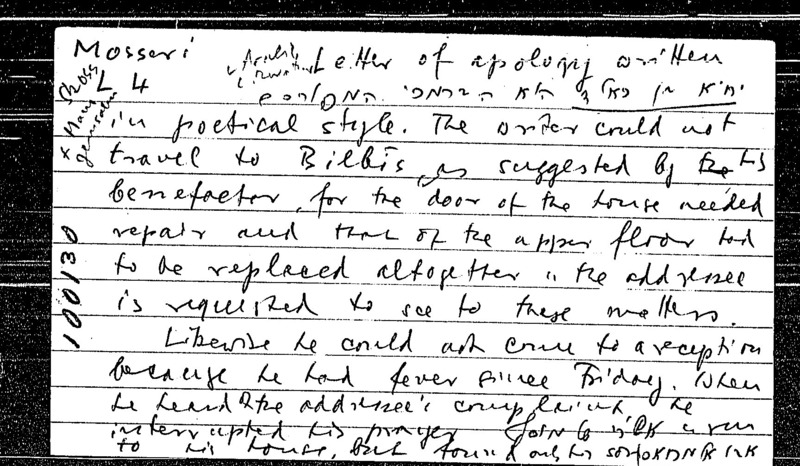 Mosseri Letter of apology written
L 4
in poetical style. The writer could not
travel to Bilbis, as suggested by his
benefactor, for the door of the house needed
repair and that of the upper floor had
to be replaced altogether " the addressee
is requested to see to these matters.
Likewise he could not come to a reception
because he had fever since Friday. When
he heard the addressee's complaint, he
interrupted his prayer
to his house, but found only his
100130